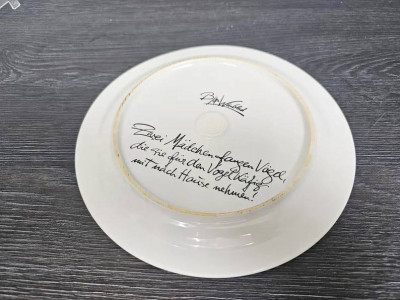 Zwei Mädchen fangen Vögel,
die sie für den Vogelkäfig
mit nach Hause nehmen!